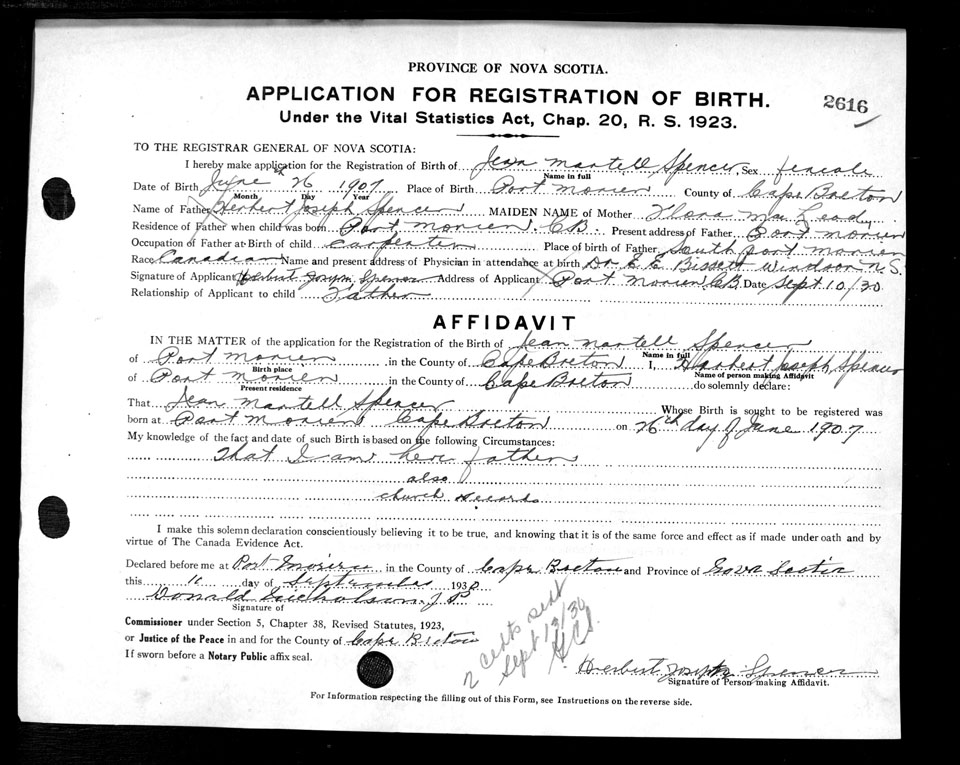 PROVINCE OF NOVA SCOTIA.
APPLICATION FOR REGISTRATION OF BIRTH.
2616
Under the Vital Statistics Act, Chap. 20, R. S. 1923.
TO THE REGISTRAR GENERAL OF NOVA SCOTIA:
I hereby make application for the Registration of Birth of Jean Martell Spencer Sex female
Name in full
Date of Birth June 26 1907 Place of Birth Port Morien County of Cape Breton
Month Day Year
Name of Father Herbert Joseph Spencer MAIDEN NAME of Mother Flora Mac Leod
Residence of Father when child was born Port Morien C.B. Present address of Father Port Morien
Occupation of Father at Birth of child Carpenter Place of birth of Father South port morien
Race Canadian Name and present address of Physician in attendance at birth Dr E E Bissett Windsor N.S.
Signature of Applicant Herbert Joseph Spencer Address of Applicant Port Morien C.B. Date Sept 10/30
Relationship of Applicant to child Father
AFFIDAVIT
IN THE MATTER of the application for the Registration of the Birth of Jean Martell Spencer
Name in full
of Port Morien in the County of Cape Breton I, Herbert Joseph Spencer
Birth place Name of person making Affidavit
of Port Morien in the County of Cape Breton do solemnly declare:
Present residence
That Jean Martell Spencer Whose Birth is sought to be registered was
born at Port Morien Cape Breton on 26th day of June 1907
My knowledge of the fact and date of such Birth is based on the following Circumstances:
That I am here father
also
church records
I make this solemn declaration conscientiously believing it to be true, and knowing that it is of the same force and effect as if made under oath and by
virtue of The Canada Evidence Act.
Declared before me at Port Morien in the County of Cape Breton and Province of Nova Scotia
this 11 day of September 1930
Donald Nicholson J.P.
Signature of
Commissioner under Section 5, Chapter 38, Revised Statutes, 1923,
or Justice of the Peace in and for the County of Cape Breton
If sworn before a Notary Public affix seal.
2 certs sent
Sept 13/30
Herbert Joseph Spencer
Signature of Person making Affidavit.
For Information respecting the filling out of this Form, see Instructions on the reverse side.